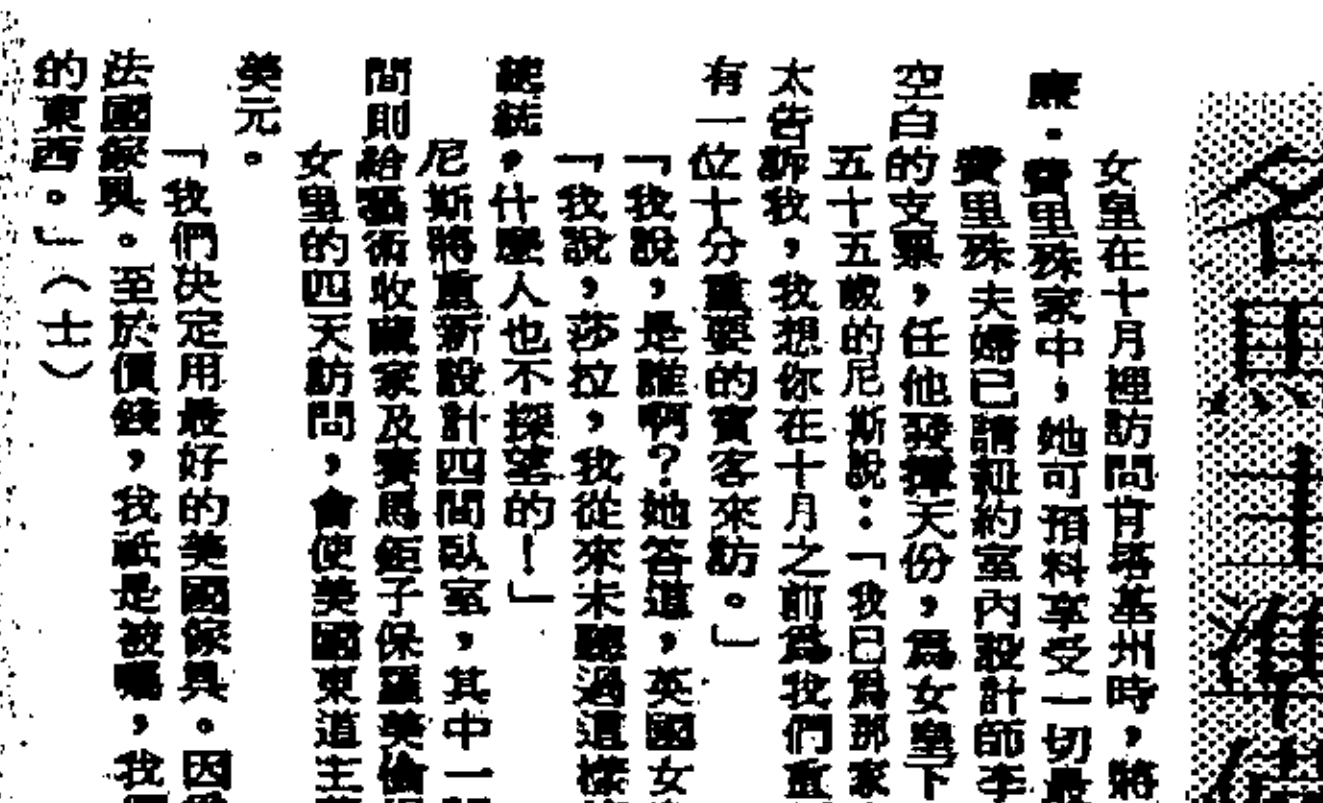 名馬主準備
女皇在十月裡訪問肯塔基州時，將
廉．費里殊家中，她可預料享受一切最
費里殊夫婦已請紐約室內設計師李
空白的支票，任他發揮天份，爲女皇下
五十五歲的尼斯說：「我已爲那家
太告訴我，我想你在十月之前爲我們重
有一位十分重要的賓客來訪。」
「我說，是誰啊？她答道，英國女
「我說，莎拉，我從來未聽過這樣
總統，什麼人也不探望的！」
尼斯將重新設計四間臥室，其中一
間則給藝術收藏家及賽馬鉅子保羅美倫
女皇的四天訪問，會使美國東道主
美元。
「我們決定用最好的美國傢具。因
法國傢具。至於價錢，我祇是被囑，我
的東西。」（士）